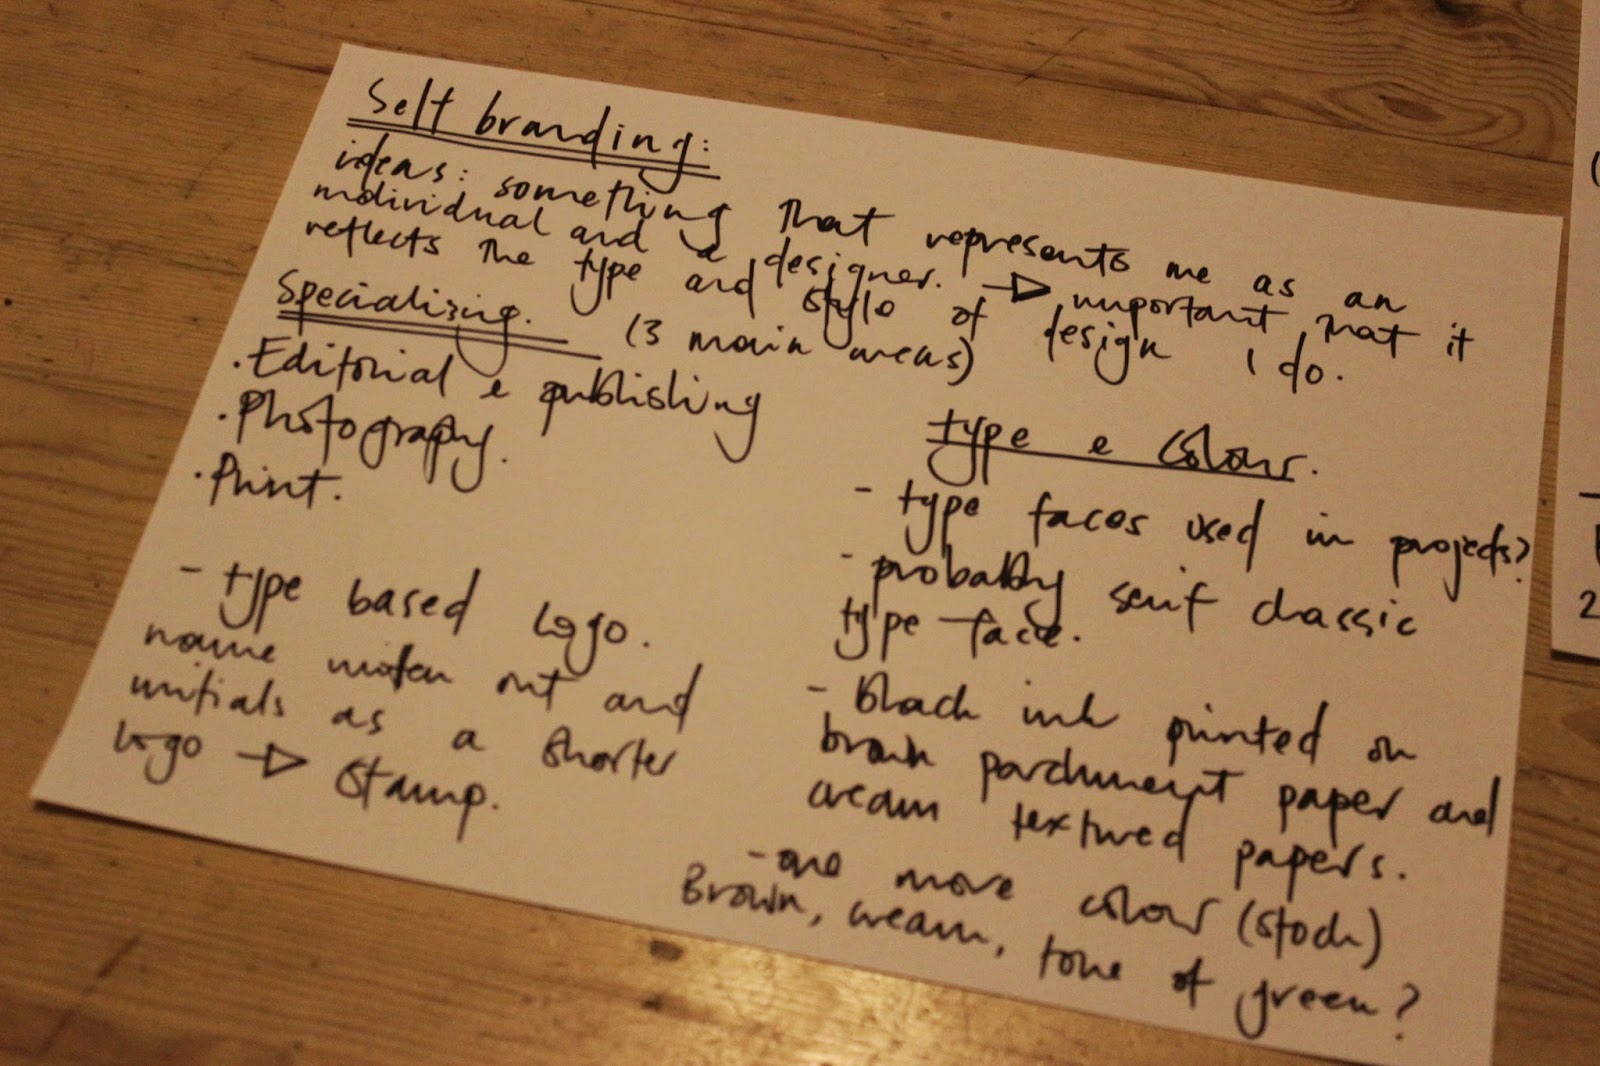 Self branding:
ideas: something that represents me as an
individual and a designer. → important that it
reflects the type and style of design I do.
Specializing. (3 main areas)
. Editorial e publishing
. Photography.
. Print.
- type based logo.
name written out and
initials as a shorter
logo → stamp.
type e colour.
- type faces used in projects?
- probably serif classic
type face.
- black ink printed on
brown parchment paper and
cream textured papers.
- one more colour (stock)
Brown, cream, tone of green?
2